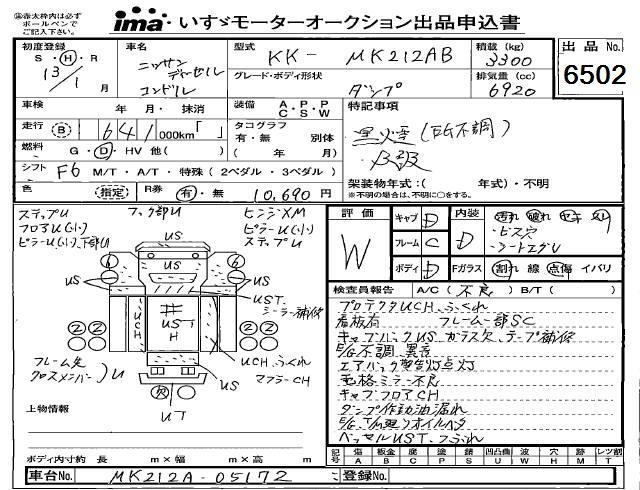 ①太枠内は必ず
ボールペンで
ご記入下さい。
ima いすゞモーターオークション出品申込書
初度登録
S・H・R
13/1 月
車名
ニッサン
ディーゼル
コンドル
型式
KK- MK212AB
積載 (kg)
3300
グレード・ボディ形状
ダンプ
排気量 (cc)
6920
出品 No.
6502
車検 年・月・抹消
装備 A.P.P
C S W
特記事項
黒火害(E/G不調)
走行 B 641 000km「 」
タコグラフ 別体
有・無 ( 年 月)
燃料 G・D・HV 他( )
シフト F6 M/T・A/T・特殊(2ペダル・3ペダル)
架装物年式:( 年式)・不明
※不明の場合は、不明に○をする。
色 (指定) R券 有・無 10,690 円
ステップU フック部U ヒンジXM
フロアU(小) ピラーU(小)
ピラーU(小).下部U ステップU
US
US US
6 6
UST.
シーラー補修
2 2 UCH UST H 2 2
UCH.ふくれ
フレーム先
クロスメンバー U US マフラーCH
欠
UT
上物情報
ボディ内寸約 長 m×幅 m×高 m
評価 W
キャブ D 内装 D 汚れ 破れ セキ スリ
・ビス穴
フレーム C ・シートエグU
ボディ D Fガラス 割れ 線 点傷 イバリ
検査員報告 A/C(不良) B/T( )
プロテクタUCH.ふくれ
看板有 フレーム一部SC
キャブバックUS ガラス欠.テープ補修
E/G不調.異音
エアバッグ警告灯点灯
電格ミラー不良
キャブフロアCH
ダンプ作動油漏れ
E/G.T/M廻りオイルベタ
ベッセルUST.つぶれ
記号 傷A 板金B 腐C 塗P 錆S 凹凸曲U 波W 穴H 跡M レンズ割T
車台No. MK212A-05172 登録No.